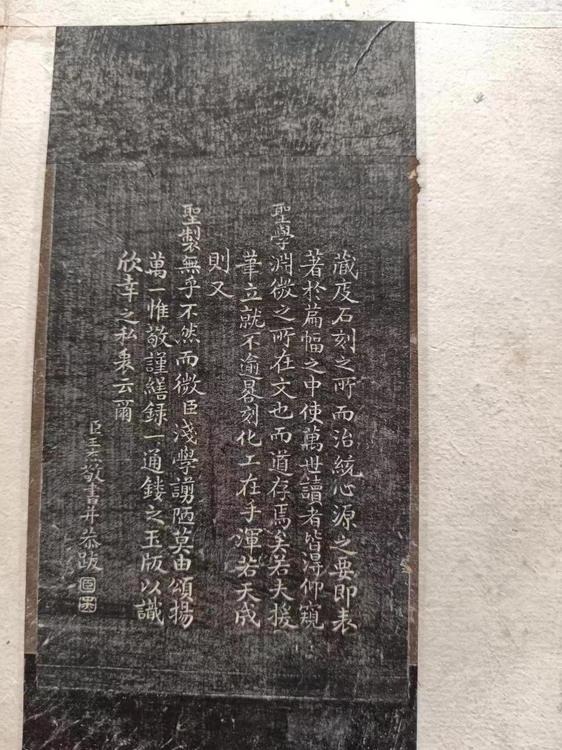 藏庋石刻之所而治統心源之要即表
著於扁幅之中使萬世讀者皆得仰窺
聖學淵微之所在文也而道存焉矣若夫援
筆立就不逾晷刻化工在手渾若天成
則又
聖製無乎不然而微臣淺學謭陋莫由頌揚
萬一惟敬謹繕錄一通鏤之玉版以識
欣幸之私衷云爾
臣王杰敬書并恭跋